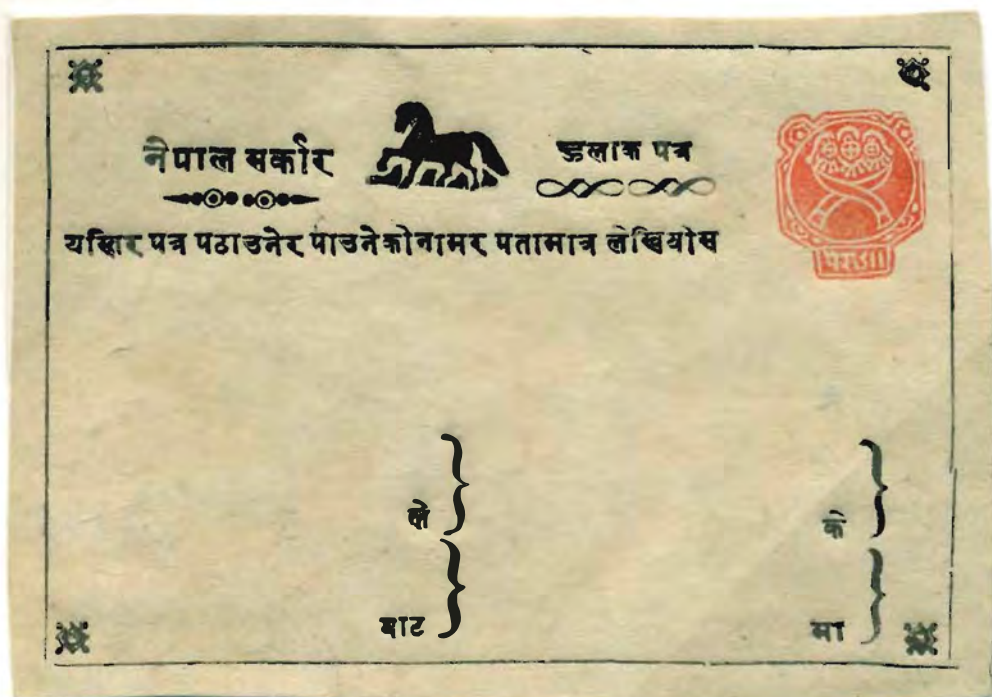 नेपाल सर्कार
हुलाक पत्र
यसतिर पत्र पठाउनेर पाउनेकोनामर पतामात्र लेखियोस
को
के
बाट
मा